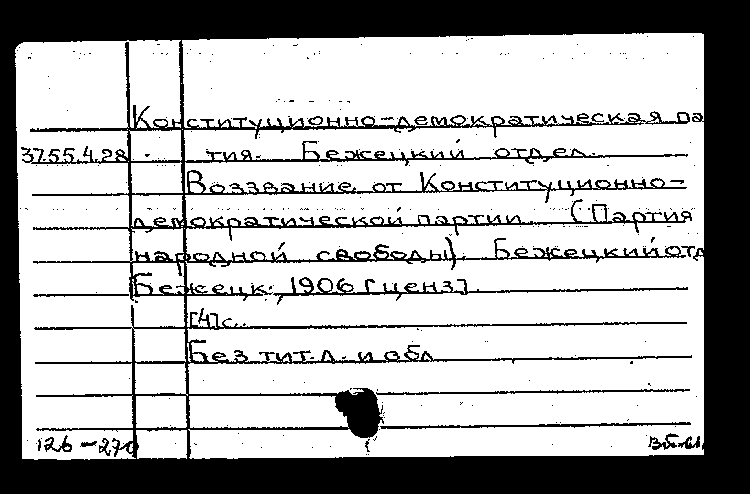 Конституционно-демократическая па
37.55.4.28 тия. Бежецкий отдел.
Воззвание от Конституционно-
демократической партии. (Партия
народной свободы). Бежецкий отд
Бежецк, 1906 [ценз].
[4]с.
Без тит.л. и обл
126-270